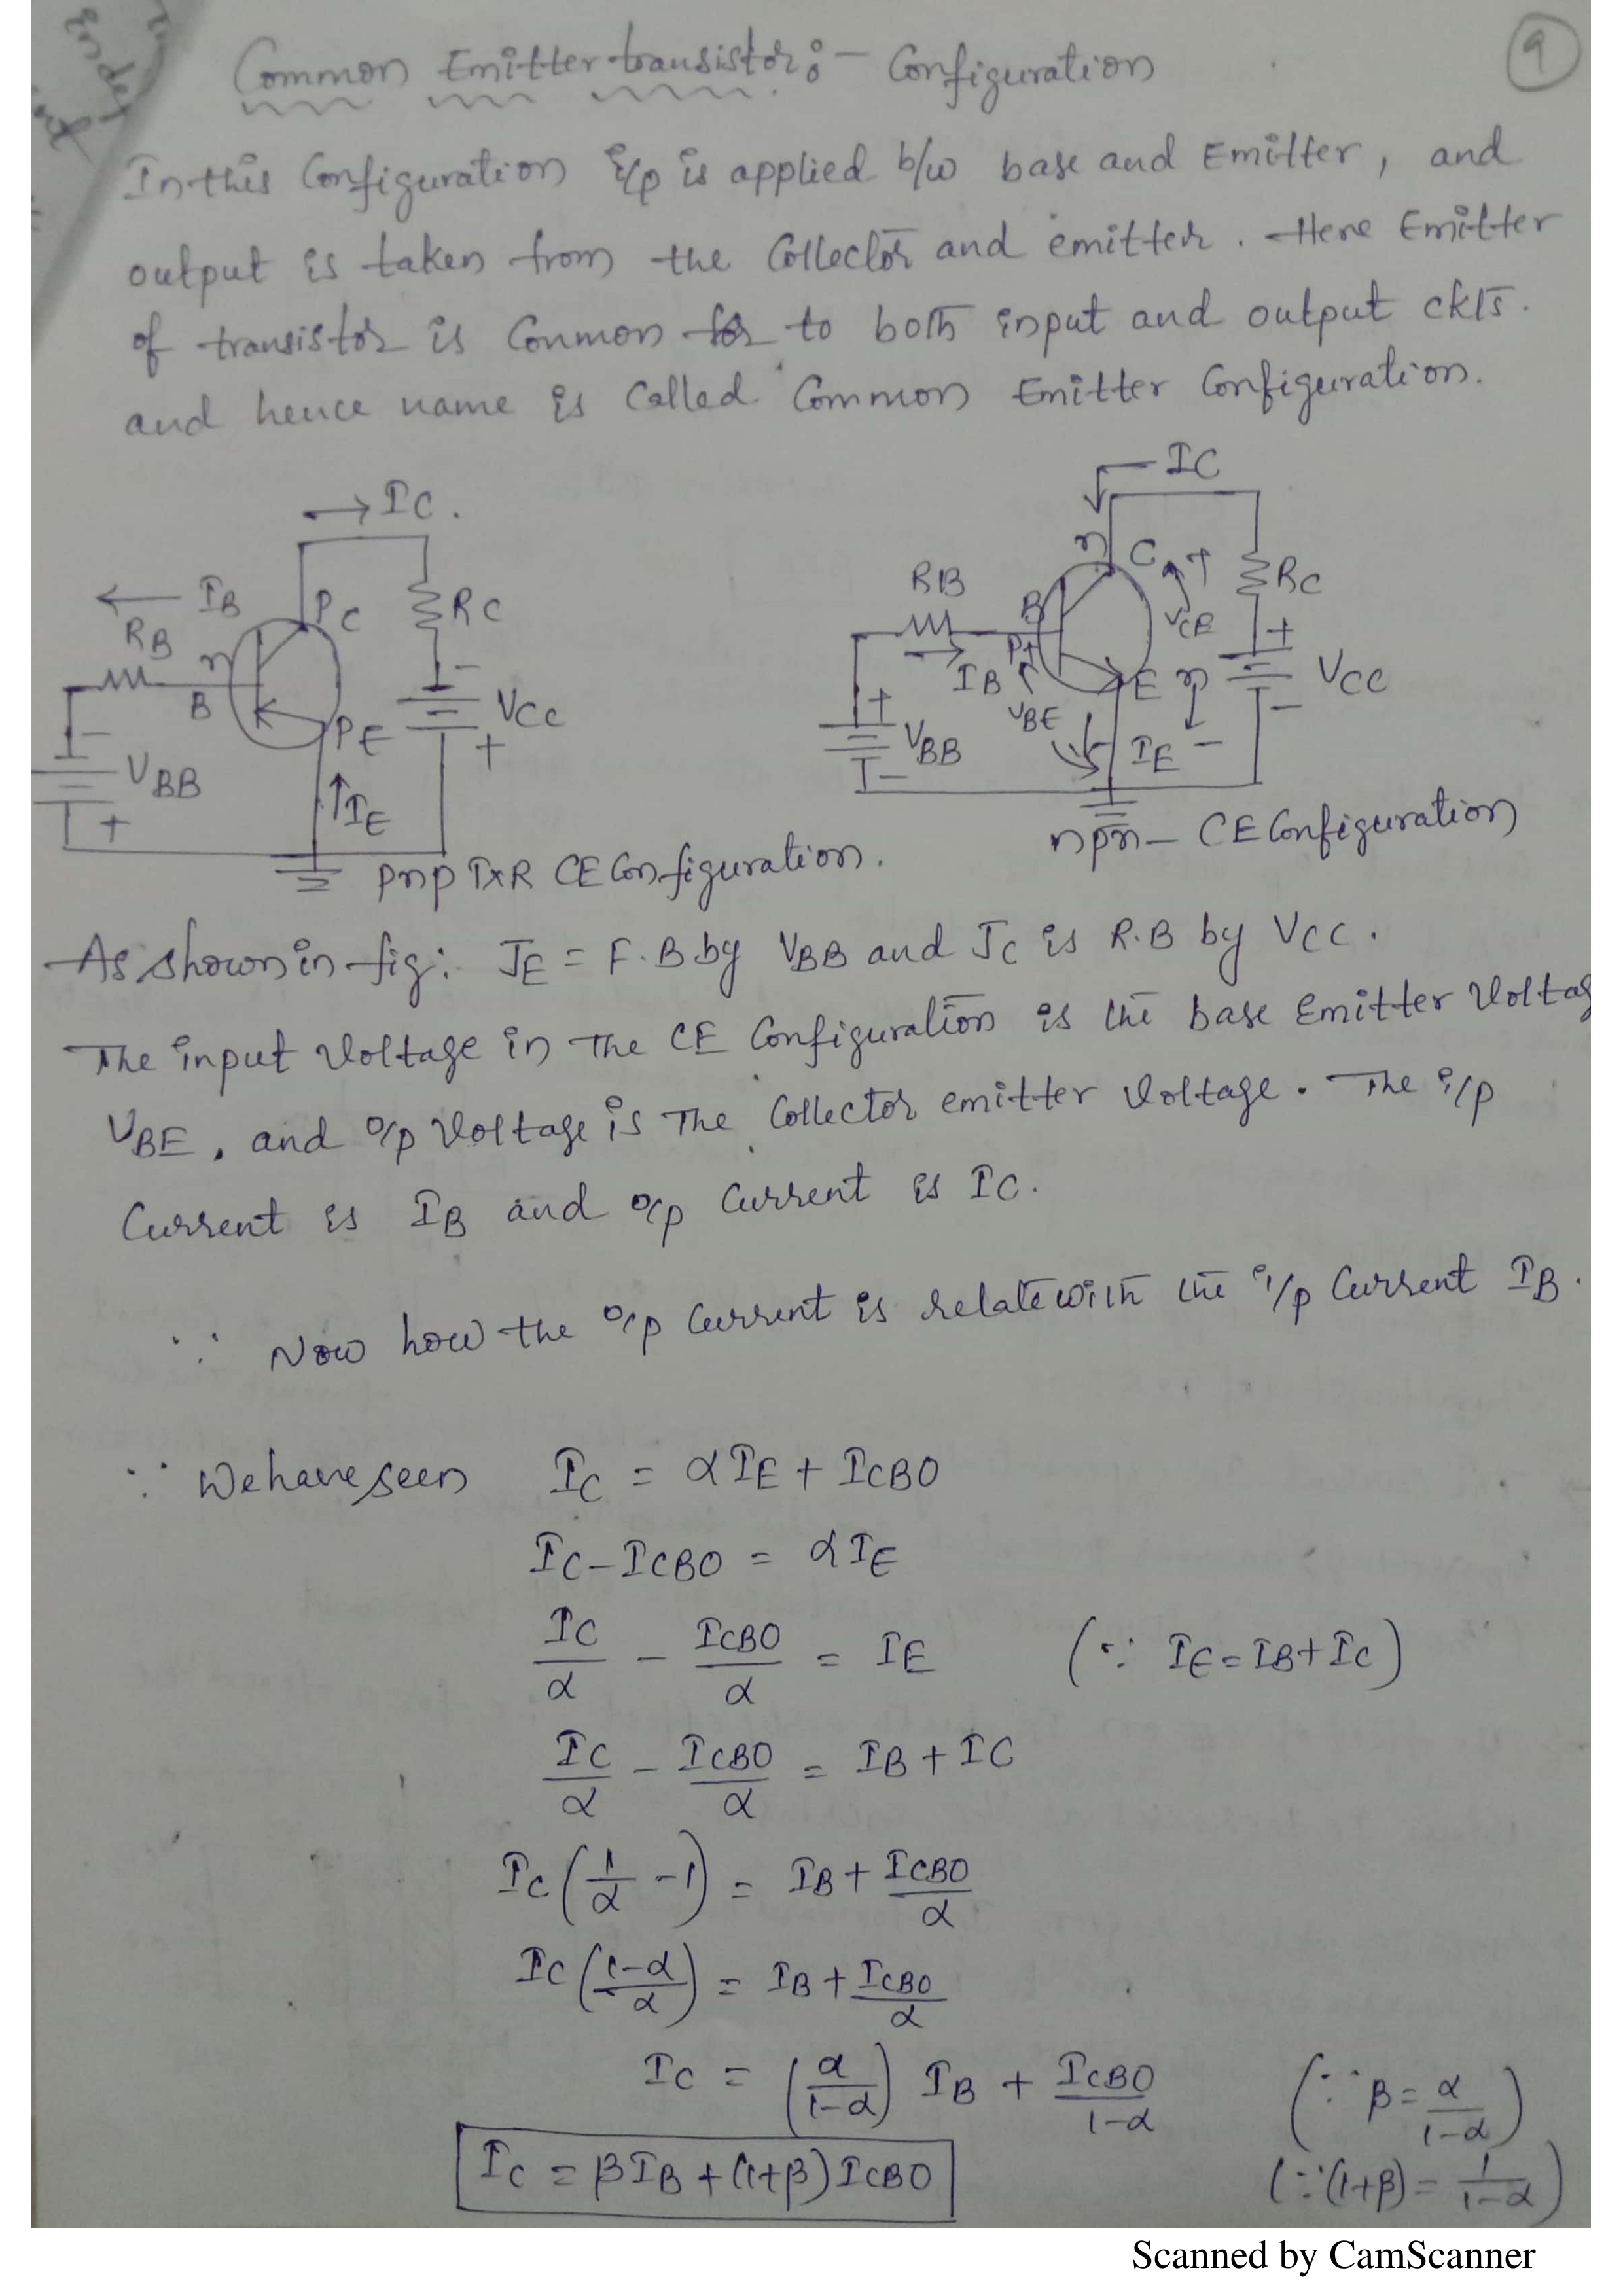 Common Emitter transistor :- Configuration
9
In this Configuration i/p is applied b/w base and Emitter, and
output is taken from the Collector and emitter. Here Emitter
of transistor is Conmon for to both input and output ckts.
and hence name is Called Common Emitter Configuration.
→ IC.
← IB
RB
n
B
PC
RC
PE
VBB
VCC
↑IE
- + - +
pnp TxR CE Configuration.
IC
RB
n
C
+
VCE
RC
B
P+
IB
VBE
E n
IE -
VBB
VCC
+ - + -
npn - CE Configuration
As shown in fig: JE = F.B by VBB and JC is R.B by VCC.
The input Voltage in The CE Configuration is the base Emitter Voltag
VBE, and o/p Voltage is The Collector emitter Voltage. The i/p
Current is IB and o/p Current is IC.
∵ Now how the o/p Current is relate with the i/p Current IB.
∵ We have seen IC = αIE + ICBO
IC - ICBO = αIE
IC/α - ICBO/α = IE (∵ IE = IB + IC)
IC/α - ICBO/α = IB + IC
IC (1/α - 1) = IB + ICBO/α
IC ((1-α)/α) = IB + ICBO/α
IC = (α/(1-α)) IB + ICBO/(1-α) (∵ β = α/(1-α))
IC = βIB + (1+β) ICBO (∵ (1+β) = 1/(1-α))
Scanned by CamScanner